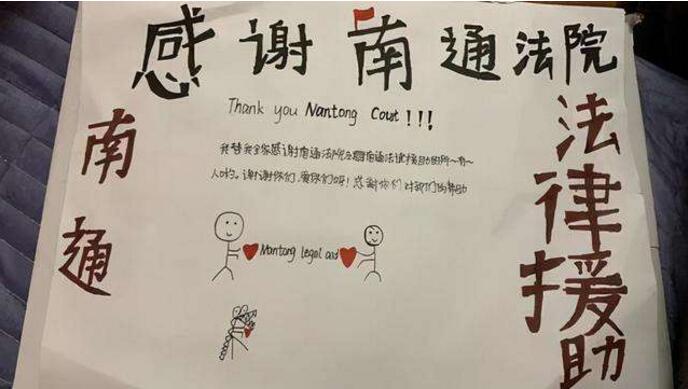 感谢南通法院
Thank you Nantong Cout!!!
我替我全家感谢南通法院及南通法律援助的所~有~
人哟。谢谢你们、爱你们呀!感谢你们对我们的帮助
南通
法律援助
Nantong legal aid